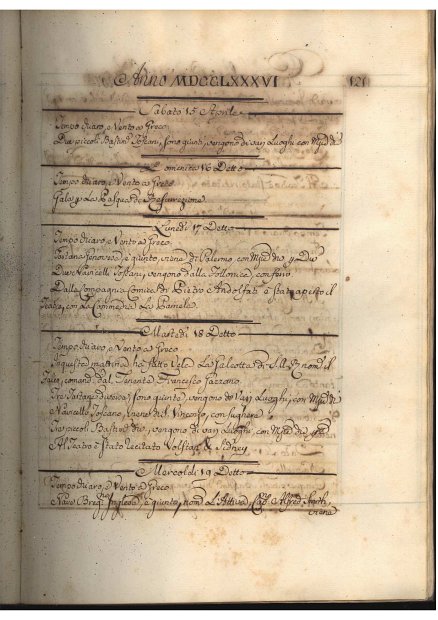 Anno MDCCLXXXVI 121
Sabato 15 Aprile
Tempo chiaro, e Vento a Greco
Due piccoli Bastim.ti Toscani, sono giunti, vengono di varj Luoghi, con M
Domenica 16 Detto
Tempo chiaro, e Vento a Greco
Gala p. La Pasqua di Resurezione
Lunedi 17 Detto
Tempo chiaro, e Vento a Greco.
Tartana Genovese, è giunto, viene di Palermo, con
Due Navicelli Toscani, vengono dalla Follonica, con ferro
Dalla Compagnia Comica di Pietro Andolfati è stato aperto il
con la Commedia La Pamela
Martedi 18 Detto
Tempo chiaro, e Vento a Greco
Questa mattina ha fatto Vela La Galeotta di S.A.R. nom.
comand. dal Tenente Francesco
Tre Tartane diverse, sono giunte, vengono di Varj Luoghi, con
Navicello Toscano, viene da S. Vincenzo, con sughera
Tre piccoli Bastim. vengono di varj Luoghi, con
Al Teatro è stato recitato Volsan, & Sidney
Mercoldi 19 Detto
Tempo chiaro, e Vento a Greco
Nave Inglese, è giunto, nom. L'Attiva, Cap. Alfred Smith,
viene